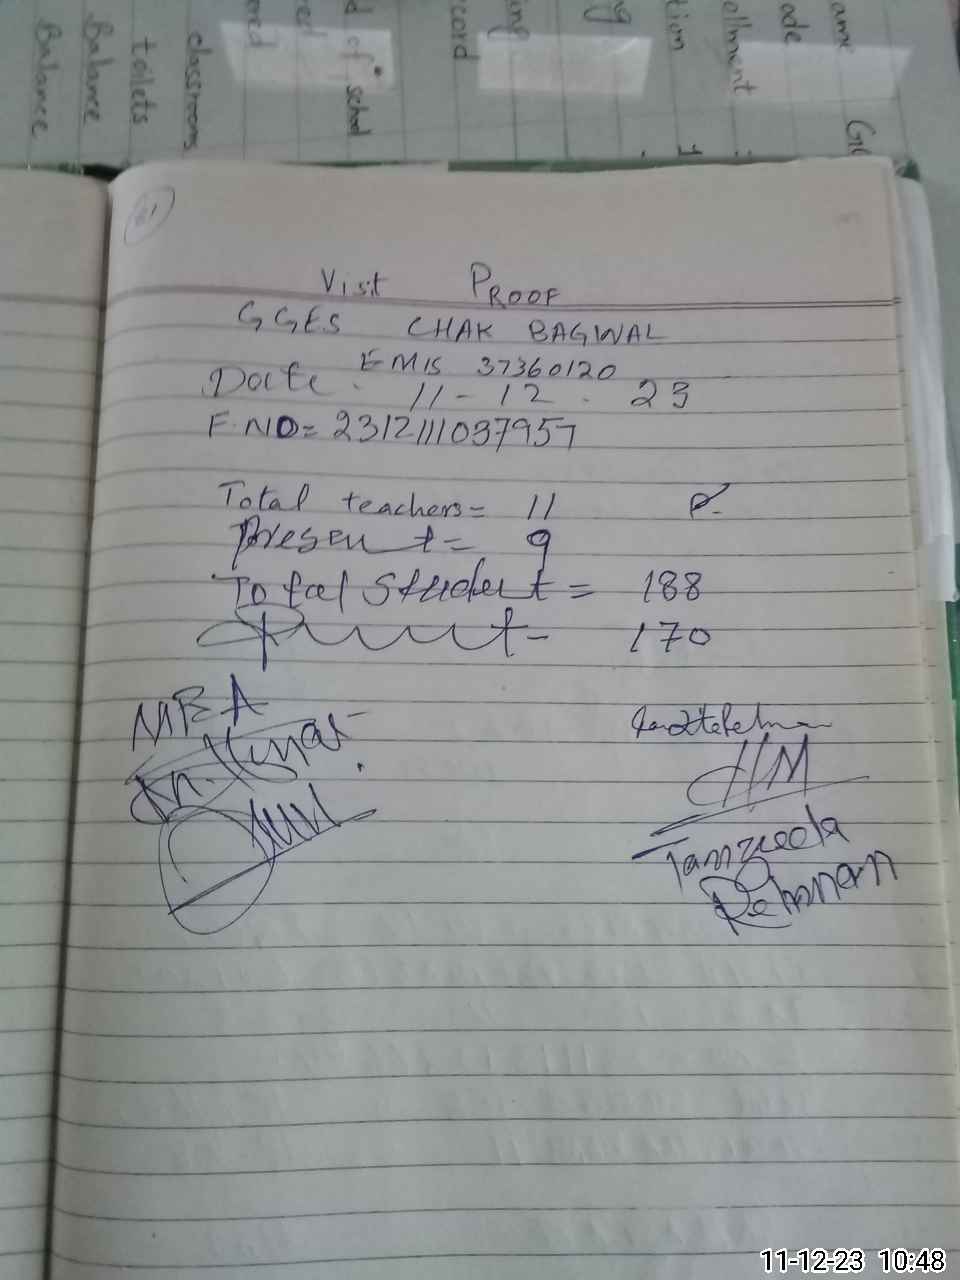 ame
ade
ollment
tion 1
ng
ing
cord
d of school
classrooms
toilets
Balance
Balance
Visit PROOF
GGES CHAK BAGWAL
EMIS 37360120
Date. 11-12.23
F.NO=2312111037957
Total teachers= 11
Present= 9
Total Student= 188
Present- 170
MEA
HM
Tanzeela
Rehman
11-12-23 10:48